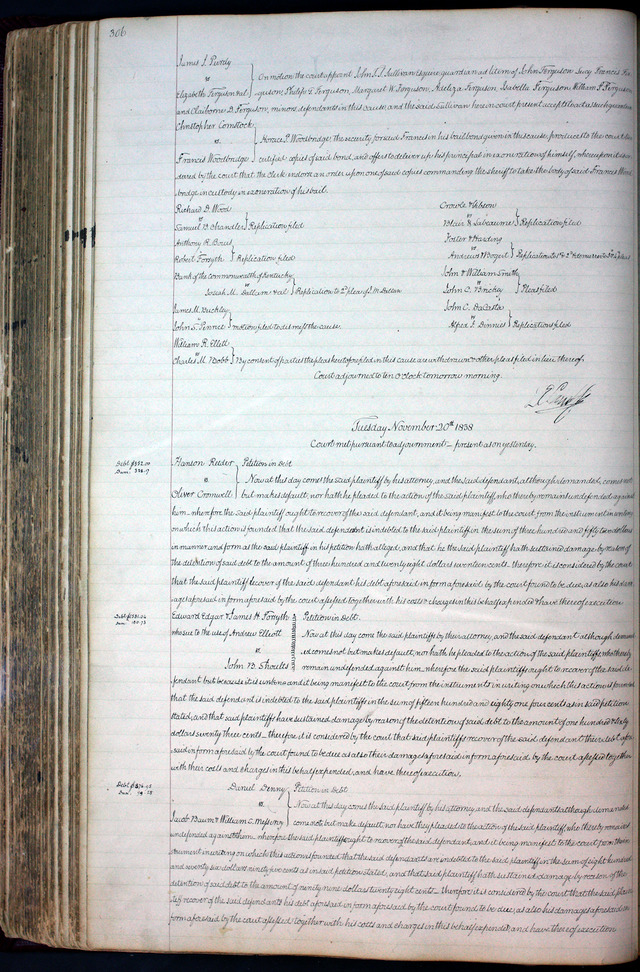 306
James S. Purdy
vs
Elizabeth Ferguson et al.
On motion the court appoint John T. Sullivan Esquire guardian ad litem of John Ferguson Lucy Francis
guson, Philip D. Ferguson, Margaret W. Ferguson, Isabella Ferguson, William F. Ferguson,
and Claiborne D. Ferguson, minor defendants in this cause and the said Sullivan here in court present accepts
Christopher Comstock
vs
Francis Woodbridge
Horace P. Woodbridge, the security for said Francis in his bail bond given in this cause, produces to the court
certified copies of said bond, and offers to deliver up his principal in exoneration of himself, whereupon it is or
dered by the court that the clerk endorse an order upon one of said copies commanding the sheriff to take the body of said Francis Wood
bridge in custody in exoneration of his bail.
Richard D. Wood
vs
Samuel B. Chandler } Replication filed
Anthony R. Bouis
vs
Robert Forsyth } Replication filed
Bank of the commonwealth of Kentucky
vs
Josiah M. Dillam et al } Replication to 2d plea of M Dillam
James M. Buckley
vs
John S. Pennel } motion filed to dismiss the cause.
William R. Ellett
vs
Charles M. Bobb } By consent of parties the pleas heretofore filed in this cause are withdrawn & other pleas filed in lieu thereof.
Crowle & Gibson
vs
Blair & Labeaume } Replication filed
Foster & Harding
vs
Andrews & Bogert } Replication to
John & William Smith
vs
John C. } Pleas filed
John C. DaCosta
vs
Alfred J. Dennis } Replications filed
Court adjourned to ten o'clock tomorrow morning.
Tuesday November 20th 1838
Court met pursuant to adjournment present as on yesterday.
Debt $352.00
Dam. 328.17
Hanson Reider
vs
Oliver Cromwell
Petition in Debt
Now at this day comes the said plaintiff by his attorney, and the said defendant, although demanded, comes not
but makes default, nor hath he pleaded to the action of the said plaintiff, who thereby remains undefended against
him. wherefore the said plaintiff ought to recover of the said defendant, and it being manifest to the court, from the instrument in writing
on which this action is founded that the said defendant is indebted to the said plaintiff in the sum of three hundred and fifty two dollars
in manner and form as the said plaintiff in his petition hath alleged, and that he the said plaintiff hath sustained damage by reason of
the detention of said debt to the amount of three hundred and twenty eight dollars seventeen cents. therefore it is considered by the court
that the said plaintiff recover of the said defendant his debt aforesaid in form aforesaid by the court found to be due, as also his dam
ages aforesaid in form aforesaid by the court assessed together with his costs & charges in this behalf expended & have thereof execution.
Debt $1581.04
Dam. 130.73
Edward Edgar & James H. Forsyth
who sue to the use of Andrew Elliott
vs
John B. Shoults
Petition in Debt.
Now at this day come the said plaintiffs by their attorney, and the said defendant although demand
ed comes not but makes default, nor hath he pleaded to the action of the said plaintiffs, who thereby
remain undefended against him, wherefore the said plaintiffs ought to recover of the said de-
fendant but because it is unknown and it being manifest to the court from the instruments in writing on which this action is founded
that the said defendant is indebted to the said plaintiffs in the sum of fifteen hundred and eighty one four cents as in said petition
stated, and that said plaintiffs have sustained damage by reason of the detention of said debt to the amount of one hundred & thirty
dollars seventy three cents therefore it is considered by the court that said plaintiffs recover of the said defendant their debt afore
said in form aforesaid by the court found to be due as also their damages aforesaid in form aforesaid by the court assessed together
with their costs and charges in this behalf expended, and have thereof execution.
Debt $826.95
Dam. 99.28
Daniel Denny
vs
Jacob Baum & William C. Messing
Petition in Debt
Now at this day comes the said plaintiff by his attorney, and the said defendants although demanded
come not but make default, nor have they pleaded to the action of the said plaintiff, who thereby remains
undefended against them. wherefore the said plaintiff ought to recover of the said defendant, and it being manifest to the court from the in
strument in writing on which this action is founded, that the said defendants are indebted to the said plaintiff in the sum of eight hundred
and twenty six dollars ninety five cents as in said petition stated, and that said plaintiff hath sustained damage by reason of the
detention of said debt to the amount of ninety nine dollars twenty eight cents. Therefore it is considered by the court that the said plain
tiff recover of the said defendants his debt aforesaid in form aforesaid by the court found to be due, as also his damages aforesaid in
form aforesaid by the court assessed together with his costs and charges in this behalf expended, and have thereof execution